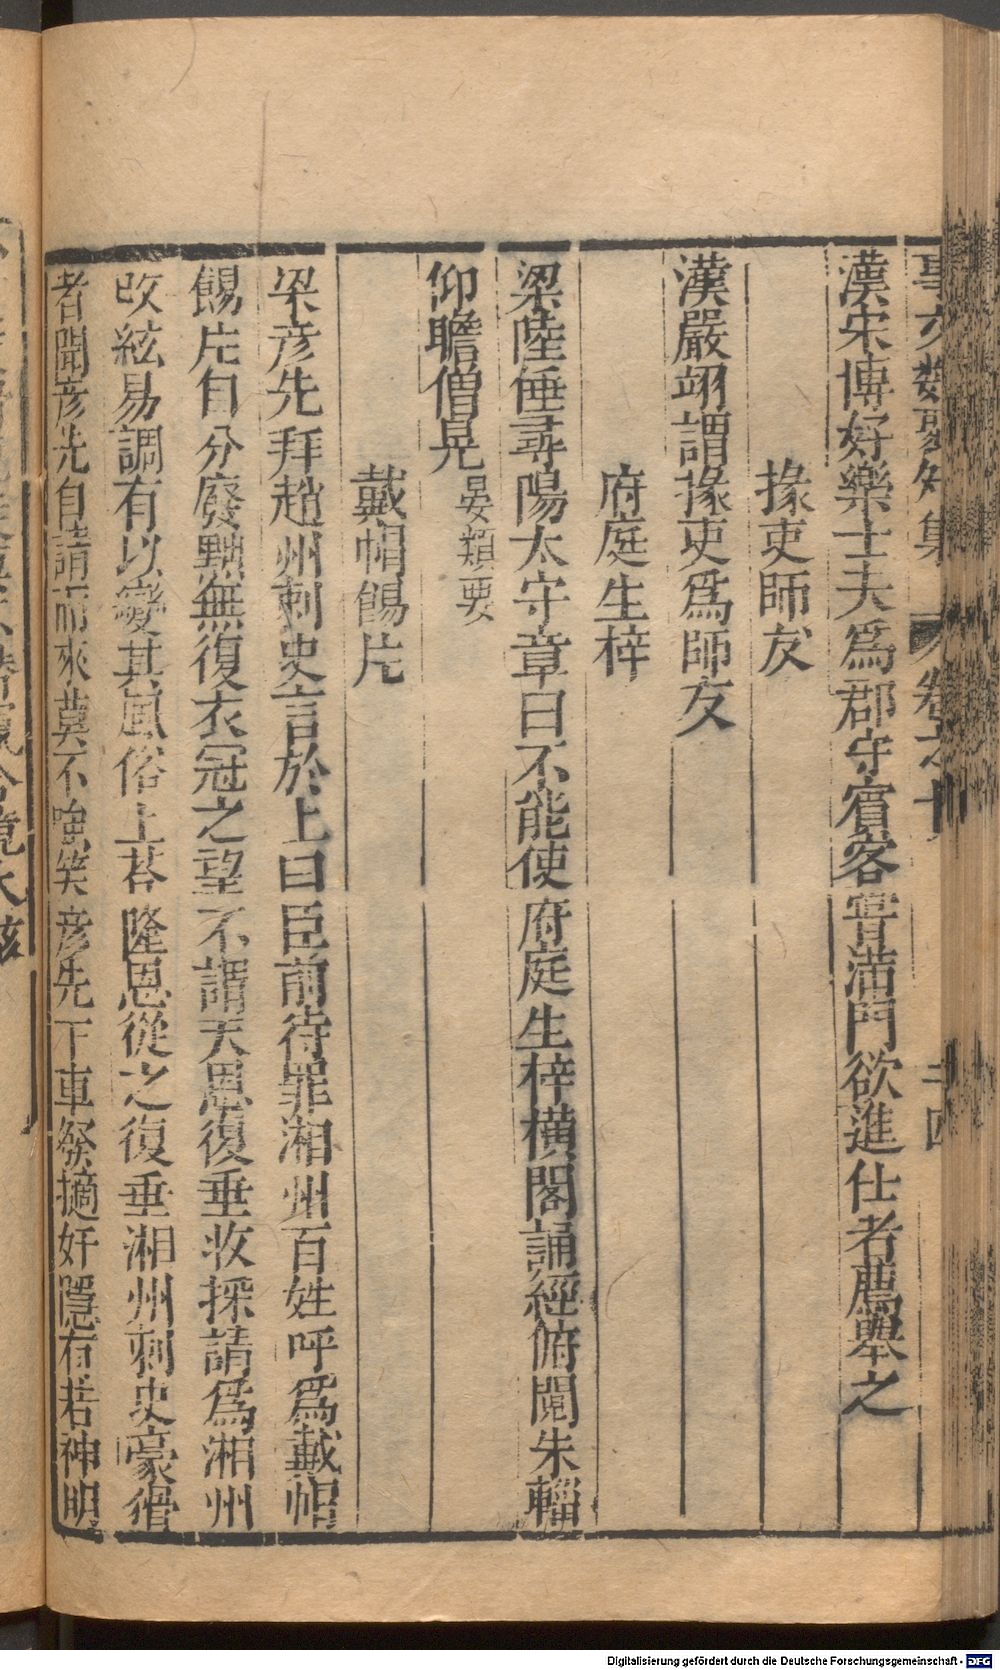 事文類聚外集　卷之十　十四
漢宋博好樂士夫爲郡守賓客嘗滿門欲進仕者薦舉之
掾吏師友
漢嚴翊謂掾吏爲師友
府庭生梓
梁陸倕尋陽太守章曰不能使府庭生梓橫閣誦經俯閱朱轓
仰瞻僧晃晏類要
戴帽餳片
梁彦先拜趙州刺史言於上曰臣前待罪湘州百姓呼爲戴帽
餳片自分廢黜無復衣冠之望不謂天恩復垂收採請爲湘州
改絃易調有以變其風俗上荅隆恩從之復垂湘州刺史豪猾
者聞彦先自請而來莫不嗤笑彦先下車發擿奸隱有若神明
Digitalisierung gefördert durch die Deutsche Forschungsgemeinschaft - DFG